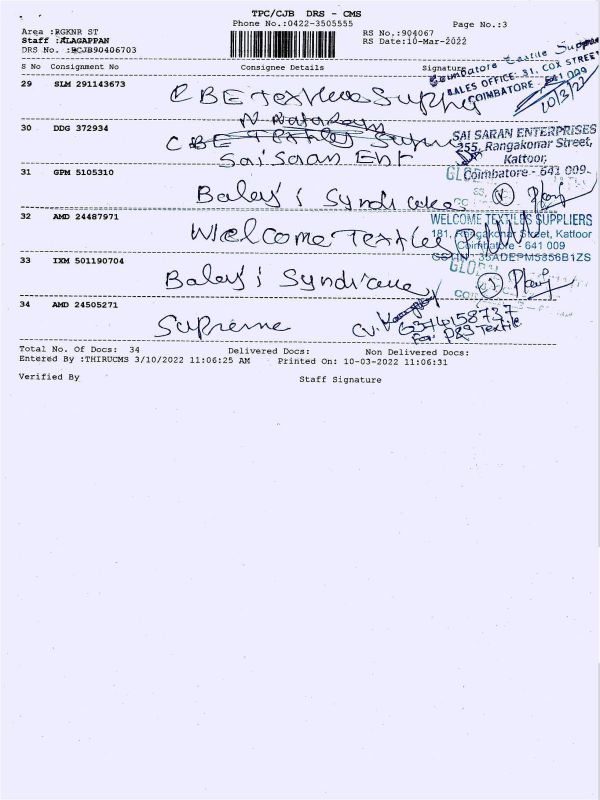 TPC/CJB DRS - CMS
Phone No.:0422-3505555
Page No.:3
Area :RGKNR ST
RS No.:904067
Staff :ALAGAPPAN
RS Date:10-Mar-2022
DRS No. :BCJB90406703
S No Consignment No Consignee Details Signature
Coimbatore Textile
SALES OFFICE: 31, COX STREET
COIMBATORE - 641 009
10/3/22
29 SLM 291143673
CBE Textiles
30 DDG 372934
N Natarajan
CBE Textiles
Sai Saran Ent
SAI SARAN ENTERPRISES
255, Rangakonar Street,
Kattoor,
Coimbatore - 641 009.
31 GPM 5105310
Balaji Syndicate
32 AMD 24487971
Welcome Textiles
WELCOME TEXTILES SUPPLIERS
181, Rangakonar Street, Kattoor
Coimbatore - 641 009
33 IXM 501190704
Balaji Syndicate
34 AMD 24505271
Supreme
6374158737
For: P&S Textile
Total No. Of Docs: 34 Delivered Docs: Non Delivered Docs:
Entered By :THIRUCMS 3/10/2022 11:06:25 AM Printed On: 10-03-2022 11:06:31
Verified By Staff Signature